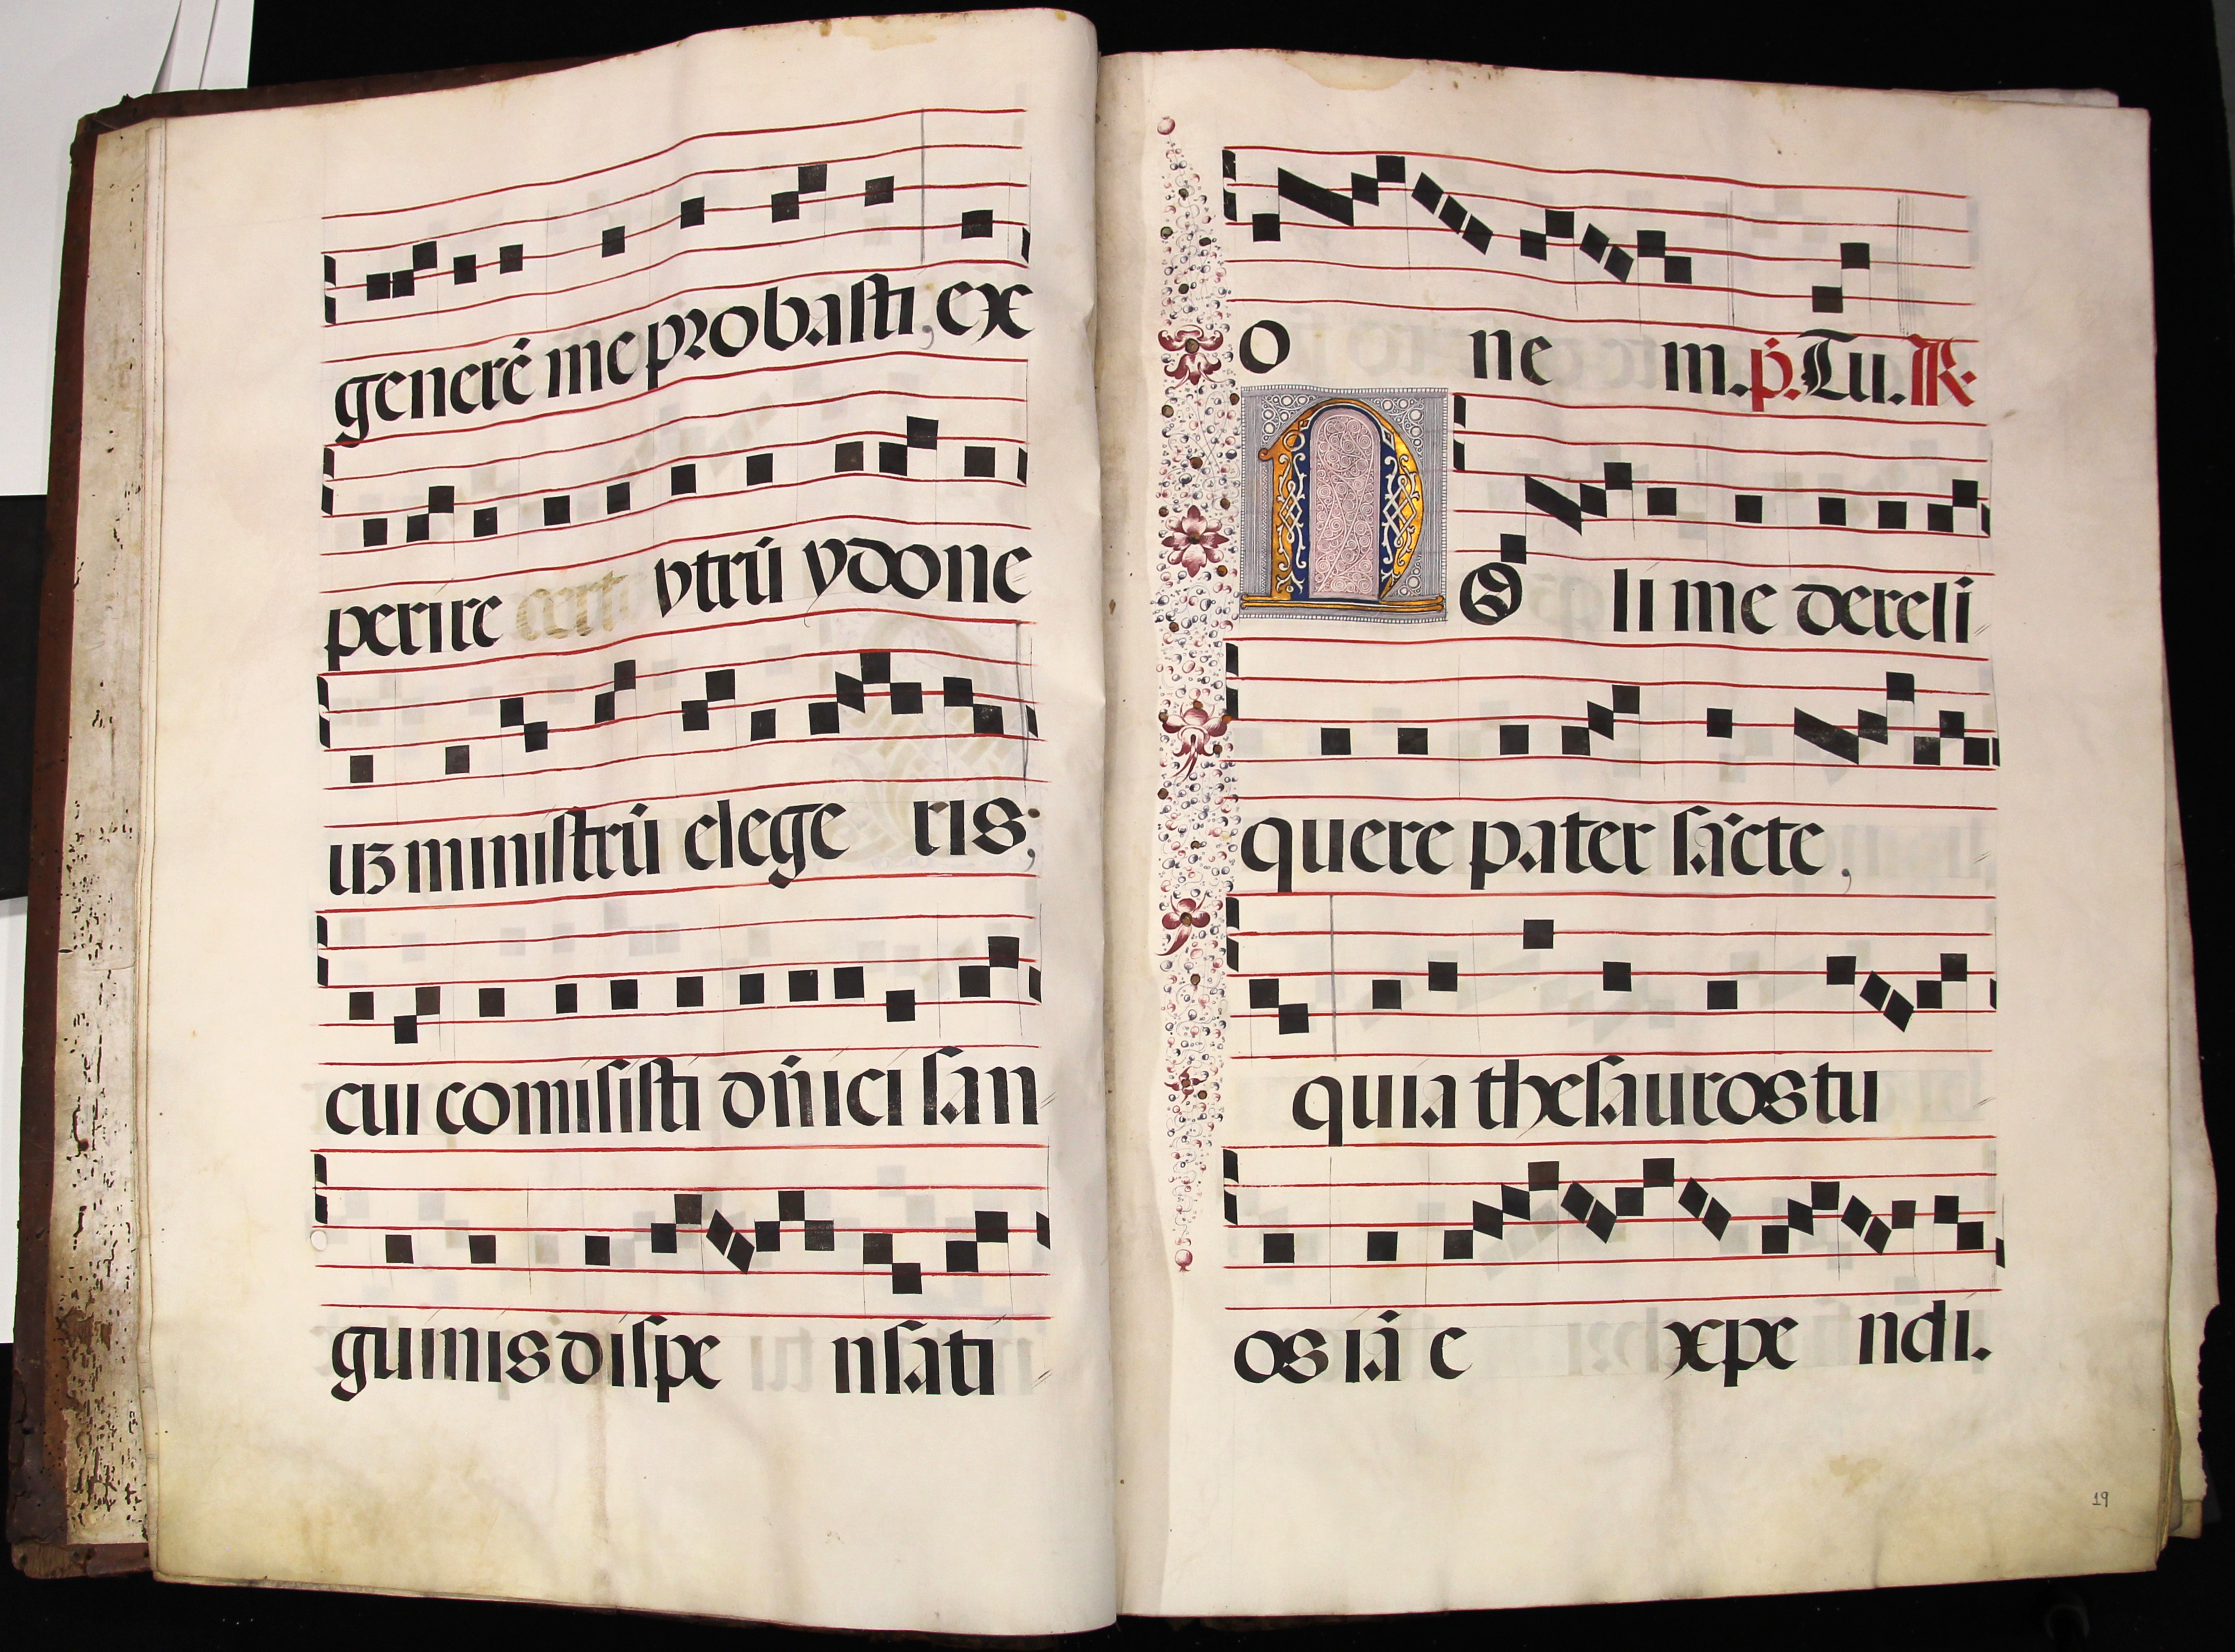 generē me probasti, ex
perire cert vtrū ydone
uʒ ministrū elege ris;
cui comisisti dn̄ici san
guinis dispe nsati
o ne m. p̄. Tu. R.
NO li me dereli
quere pater sācte,
quia thesauros tu
os iā e xpe ndi.
19